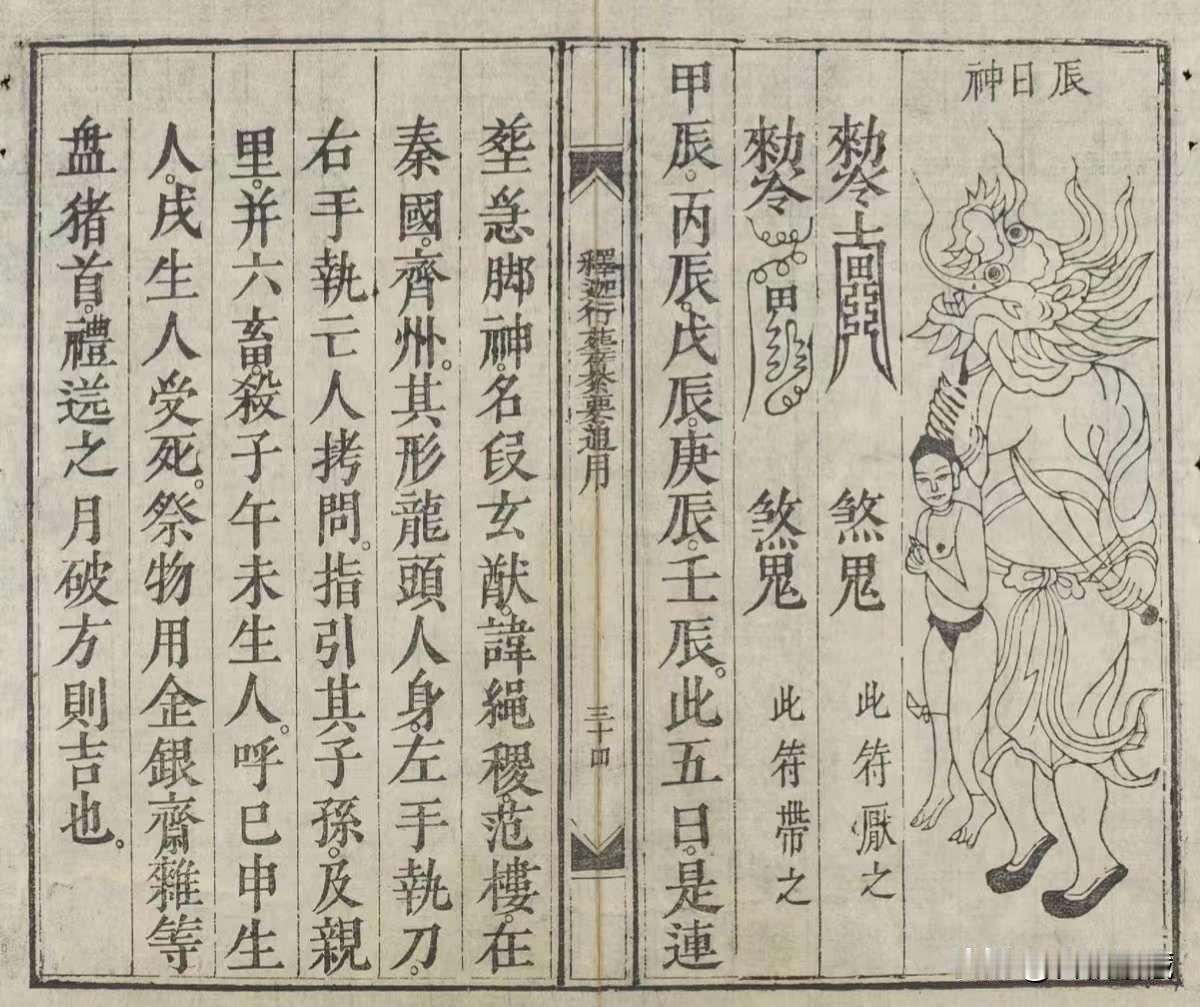 辰日神
勑令 煞鬼 此符厭之
勑令 煞鬼 此符帶之
甲辰。丙辰。戊辰。庚辰。壬辰。此五日。是連
釋迦行 要通用 三十四
塟急脚神。名段玄猷。諱繩稷范樓。在
秦國。齊州。其形龍頭人身。左手執刀。
右手執亡人拷問。指引其子孫。及親
里。并六畜。殺子午未生人。呼巳申生
人。戌生人受死。祭物用金銀齋雜等
盘猪首。禮送之月破方則吉也。